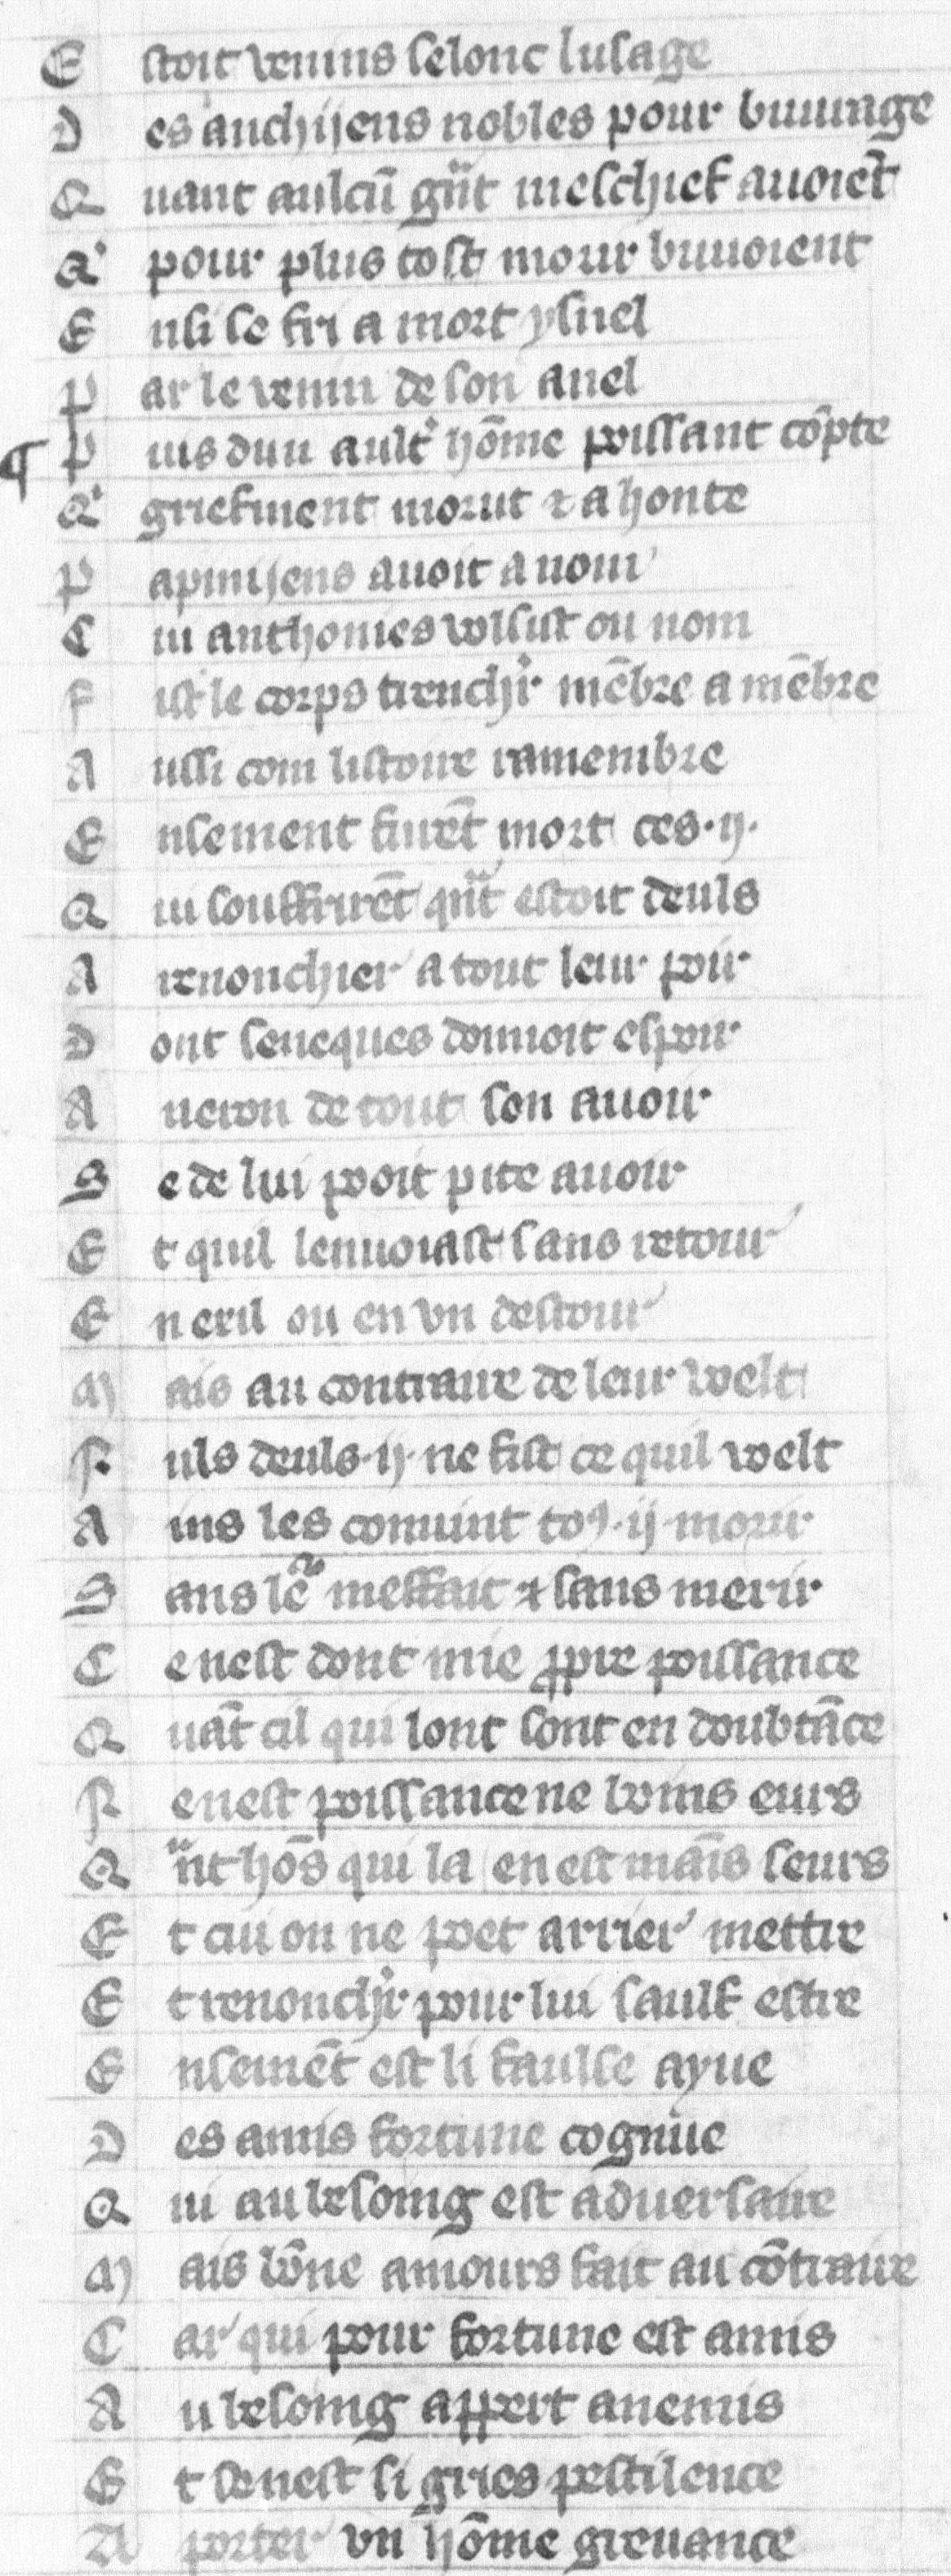 E stoit venins selonc lusage
D es anchijens nobles pour buuurage
Q uant aulcū gͥⁿt meschief auoiēt
Qͥ pour plus tost morir buuoient
E nsi se feri a mort ysnel
P ar le venin de son anel
¶ P uis dun ault' hōme poissant cōpte
Qͥ griefment morut ⁊ a honte
P apinijens auoit a nom
C ui anthonies volsist ou nom
F ist le corps trenchi' mēbre a mēbre
A ussi com listoire ramembre
E nsement furēt mort ces .ij.
Q ui souffrirēt qͣⁿt estoit deuls
A renonchier a tout leur pooir
D ont seneques donnoit espoir
A neron de tout son auoir
S e de lui pooit pite auoir
E t quil lenuoiast sans retour
E n exil ou en vn destour
M ais au contraire de leur velt
N uls deuls .ij. ne fist ce quil velt
A ins les conuint toꝰ .ij. morir
S ans lē meffait ⁊ sans merir
C e nest dont mie ꝓpre poissance
Q uāt cil qui lont sont en doubtāce
N e nest poissance ne boins eurs
Q ͣnt hōs qui la en est māis seurs
E t cui on ne poet arrier mettre
E t renonchi' pour lui sauf estre
E nsemēt est li faulse ayue
D es amis fortune cognue
Q ui au besoing est aduersaire
M ais bōne amours fait au cōtraire
C ar qui pour fortune est amis
A u besoing appert anemis
E t se nest si gries pestilence
A porter vn hōme greuance